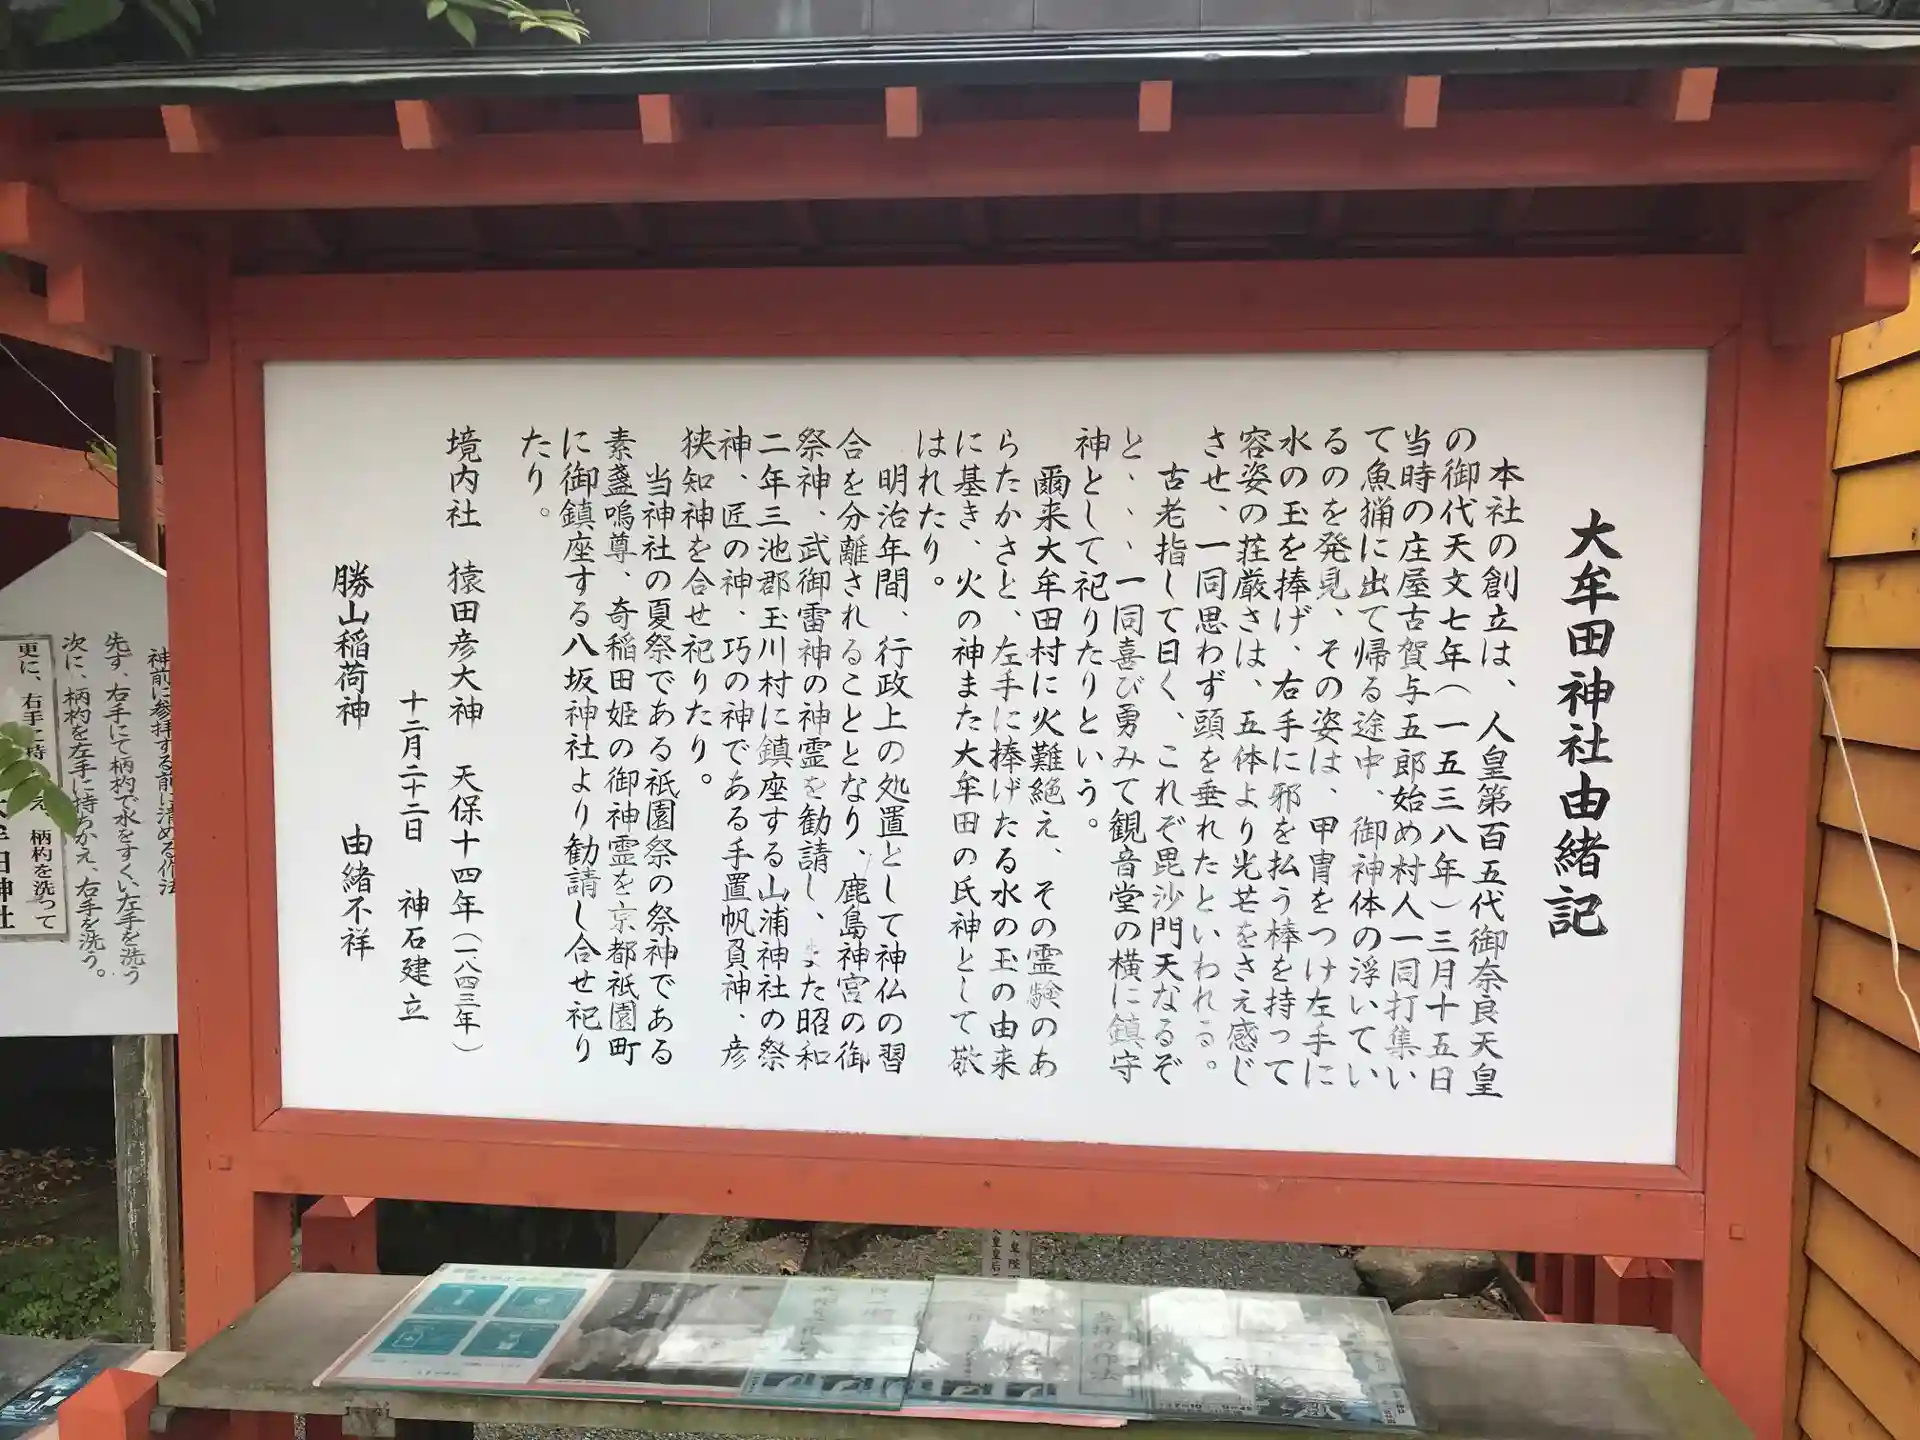 大牟田神社由緒記
本社の創立は、人皇第百五代御奈良天皇
の御代天文七年(一五三八年)三月十五日
当時の庄屋古賀与五郎始め村人一同打集い
て魚猟に出て帰る途中、御神体の浮いてい
るのを発見、その姿は、甲冑をつけ左手に
水の玉を捧げ、右手に邪を払う棒を持って
容姿の荘厳さは、五体より光芒をさえ感じ
させ、一同思わず頭を垂れたといわれる。
古老指して曰く、これぞ毘沙門天なるぞ
と、、、一同喜び勇みて観音堂の横に鎮守
神として祀りたりという。
爾来大牟田村に火難絶え、その霊験のあ
らたかさと、左手に捧げたる水の玉の由来
に基き、火の神また大牟田の氏神として敬
はれたり。
明治年間、行政上の処置として神仏の習
合を分離されることとなり、鹿島神宮の御
祭神、武御雷神の神霊を勧請し、また昭和
二年三池郡玉川村に鎮座する山浦神社の祭
神、匠の神、巧の神である手置帆負神、彦
狭知神を合せ祀りたり。
当神社の夏祭である祇園祭の祭神である
素盞嗚尊、奇稲田姫の御神霊を京都祇園町
に御鎮座する八坂神社より勧請し合せ祀り
たり。
境内社 猿田彦大神 天保十四年(一八四三年)
十二月二十二日 神石建立
勝山稲荷神 由緒不祥
神前に参拝する前に清める作法
先ず、右手にて柄杓で水をすくい左手を洗う
次に、柄杓を左手に持ちかえ、右手を洗う。
更に、右手に持 え、柄杓を洗って
大牟田神社
参拝の作法